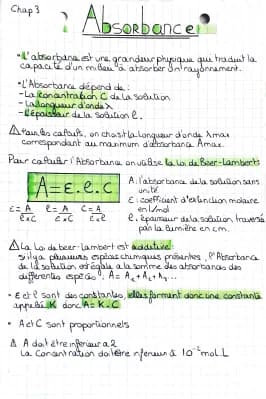 Chap 3
Absorbance
• L'absorbance est une grandeur physique qui traduit la
capacité d'un milieu à absorber 1 rayonnement.
• L'Absorbance dépend de :
- La concentration C de la solution
- La longueur d'onde λ
- L'épaisseur de la solution l.
⚠ Pour les calculs, on choisit la longueur d'onde λmax
correspondant au maximum d'absorbance Amax.
Pour calculer l'Absorbance on utilise la loi de Beer-Lamberts
A = ε.l.c
A : l'absorbance de la solution sans
unité
ε : coefficient d'extinction molaire
en l/mol
l : épaisseur de la solution traversée
par la lumière en cm.
ε = A / l×C l = A / ε×C C = A / ε×l
⚠ La Loi de beer-Lambert est additive :
si il y a plusieurs espèces chimiques présentes, l'Absorbance
de la solution est égale à la somme des absorbances des
différentes espèces : A = A₁ + A₂ + A₃ ...
• ε et l sont des constantes, elles forment donc une constante
appelée K donc A = K × C
• A et C sont proportionnels
⚠ A doit être inférieur à 2
La concentration doit être inférieure à 10⁻² mol.L